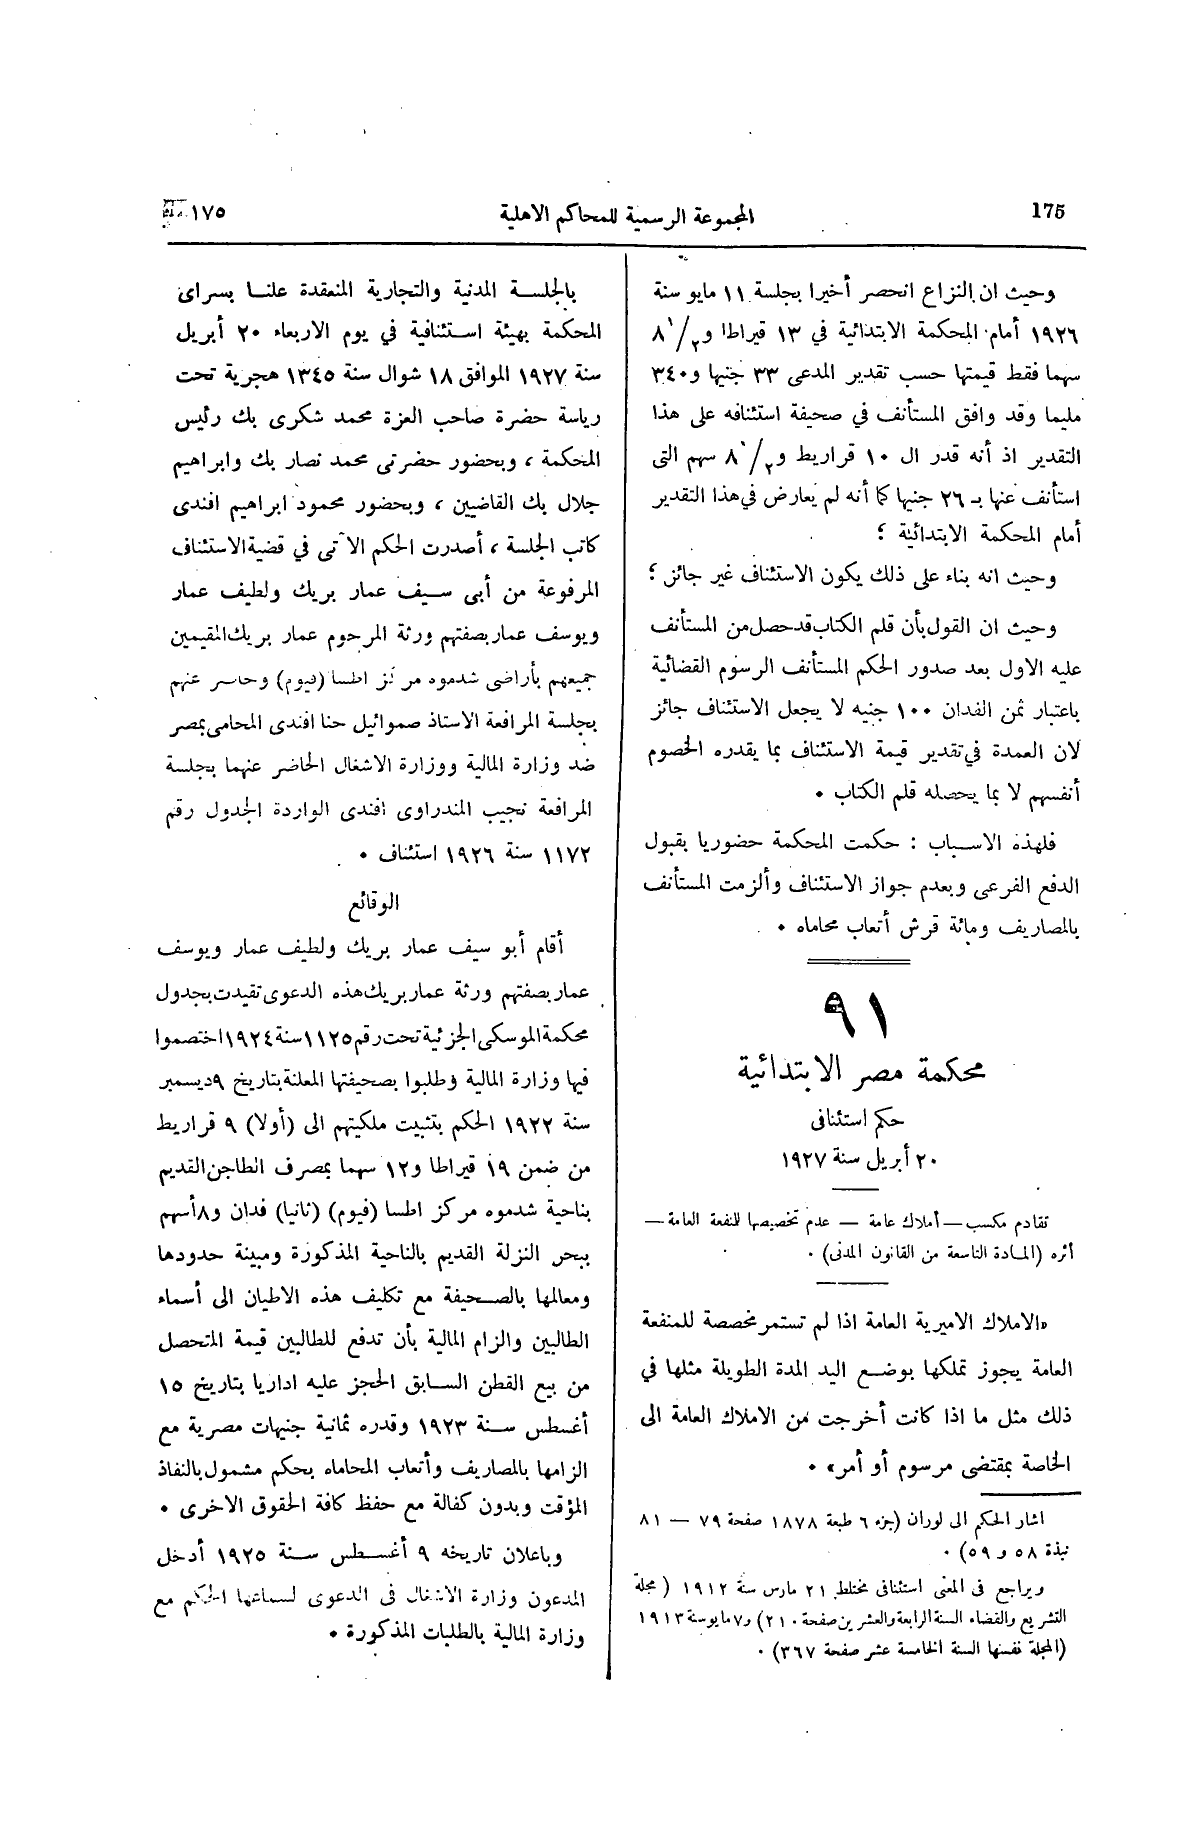 175
المجموعة الرسمية للمحاكم الاهلية
١٧٥
وحيث ان النزاع انحصر أخيرا بجلسة ١١ مايو سنة
١٩٢٦ أمام المحكمة الابتدائية في ١٣ قيراطا و ١/٢ ٨
سهما فقط قيمتها حسب تقدير المدعى ٣٣ جنيها و٣٤٠
مليما وقد وافق المستأنف في صحيفة استئنافه على هذا
التقدير اذ أنه قدر ال ١٠ قراريط و ١/٢ ٨ سهم التى
استأنف عنها بـ ٢٦ جنيها كما أنه لم يعارض في هذا التقدير
أمام المحكمة الابتدائية ؛
وحيث انه بناء على ذلك يكون الاستئناف غير جائز ؛
وحيث ان القول بأن قلم الكتاب قد حصل من المستأنف
عليه الاول بعد صدور الحكم المستأنف الرسوم القضائية
باعتبار ثمن الفدان ١٠٠ جنيه لا يجعل الاستئناف جائز
لان العمدة في تقدير قيمة الاستئناف بما يقدره الخصوم
أنفسهم لا بما يحصله قلم الكتاب .
فلهذه الاسباب : حكمت المحكمة حضوريا بقبول
الدفع الفرعى وبعدم جواز الاستئناف وألزمت المستأنف
بالمصاريف ومائة قرش أتعاب محاماه .
٩١
محكمة مصر الابتدائية
حكم استئنافى
٢٠ أبريل سنة ١٩٢٧
تقادم مكسب — أملاك عامة — عدم تخصيصها للنفعة العامة —
أثره (المادة التاسعة من القانون المدنى) .
«الاملاك الاميرية العامة اذا لم تستمر مخصصة للمنفعة
العامة يجوز تملكها بوضع اليد المدة الطويلة مثلها في
ذلك مثل ما اذا كانت أخرجت من الاملاك العامة الى
الخاصة بمقتضى مرسوم أو أمر» .
اشار الحكم الى لوران (جزء ٦ طبعة ١٨٧٨ صفحة ٧٩ — ٨١
نبذة ٥٨ و ٥٩) .
ويراجع فى المعنى استئنافى مختلط ٢١ مارس سنة ١٩١٢ (مجلة
التشريع والقضاء السنة الرابعة والعشرين صفحة ٢١٠) و٧ مايو سنة ١٩١٣
(المجلة نفسها السنة الخامسة عشر صفحة ٣٦٧) .
بالجلسة المدنية والتجارية المنعقدة علنا بسراى
المحكمة بهيئة استئنافية في يوم الاربعاء ٢٠ أبريل
سنة ١٩٢٧ الموافق ١٨ شوال سنة ١٣٤٥ هجرية تحت
رياسة حضرة صاحب العزة محمد شكرى بك رئيس
المحكمة ، وبحضور حضرتى محمد نصار بك وابراهيم
جلال بك القاضيين ، وبحضور محمود ابراهيم افندى
كاتب الجلسة ، أصدرت الحكم الآتى في قضية الاستئناف
المرفوعة من أبى سيف عمار بريك ولطيف عمار
ويوسف عمار بصفتهم ورثة المرحوم عمار بريك المقيمين
جميعهم بأراضى شدموه مركز اطسا (فيوم) وحاضر عنهم
بجلسة المرافعة الاستاذ صموائيل حنا افندى المحامى بمصر
ضد وزارة المالية ووزارة الاشغال الحاضر عنهما بجلسة
المرافعة نجيب المندراوى افندى الواردة الجدول رقم
١١٧٢ سنة ١٩٢٦ استئناف .
الوقائع
أقام أبو سيف عمار بريك ولطيف عمار ويوسف
عمار بصفتهم ورثة عمار بريك هذه الدعوى تقيدت بجدول
محكمة الموسكى الجزئية تحت رقم ١١٢٥ سنة ١٩٢٤ اختصموا
فيها وزارة المالية وطلبوا بصحيفتها المعلنة بتاريخ ٩ ديسمبر
سنة ١٩٢٢ الحكم بتثبيت ملكيتهم الى (أولا) ٩ قراريط
من ضمن ١٩ قيراطا و١٢ سهما بمصرف الطاجن القديم
بناحية شدموه مركز اطسا (فيوم) (ثانيا) فدان و٨ أسهم
ببحر النزلة القديم بالناحية المذكورة ومبينة حدودها
ومعالمها بالصحيفة مع تكليف هذه الاطيان الى أسماء
الطالبين والزام المالية بأن تدفع للطالبين قيمة المتحصل
من بيع القطن السابق الحجز عليه اداريا بتاريخ ١٥
أغسطس سنة ١٩٢٣ وقدره ثمانية جنيهات مصرية مع
الزامها بالمصاريف وأتعاب المحاماه بحكم مشمول بالنفاذ
المؤقت وبدون كفالة مع حفظ كافة الحقوق الاخرى .
وباعلان تاريخه ٩ أغسطس سنة ١٩٢٥ أدخل
المدعون وزارة الاشغال فى الدعوى لسماعها الحكم مع
وزارة المالية بالطلبات المذكورة .